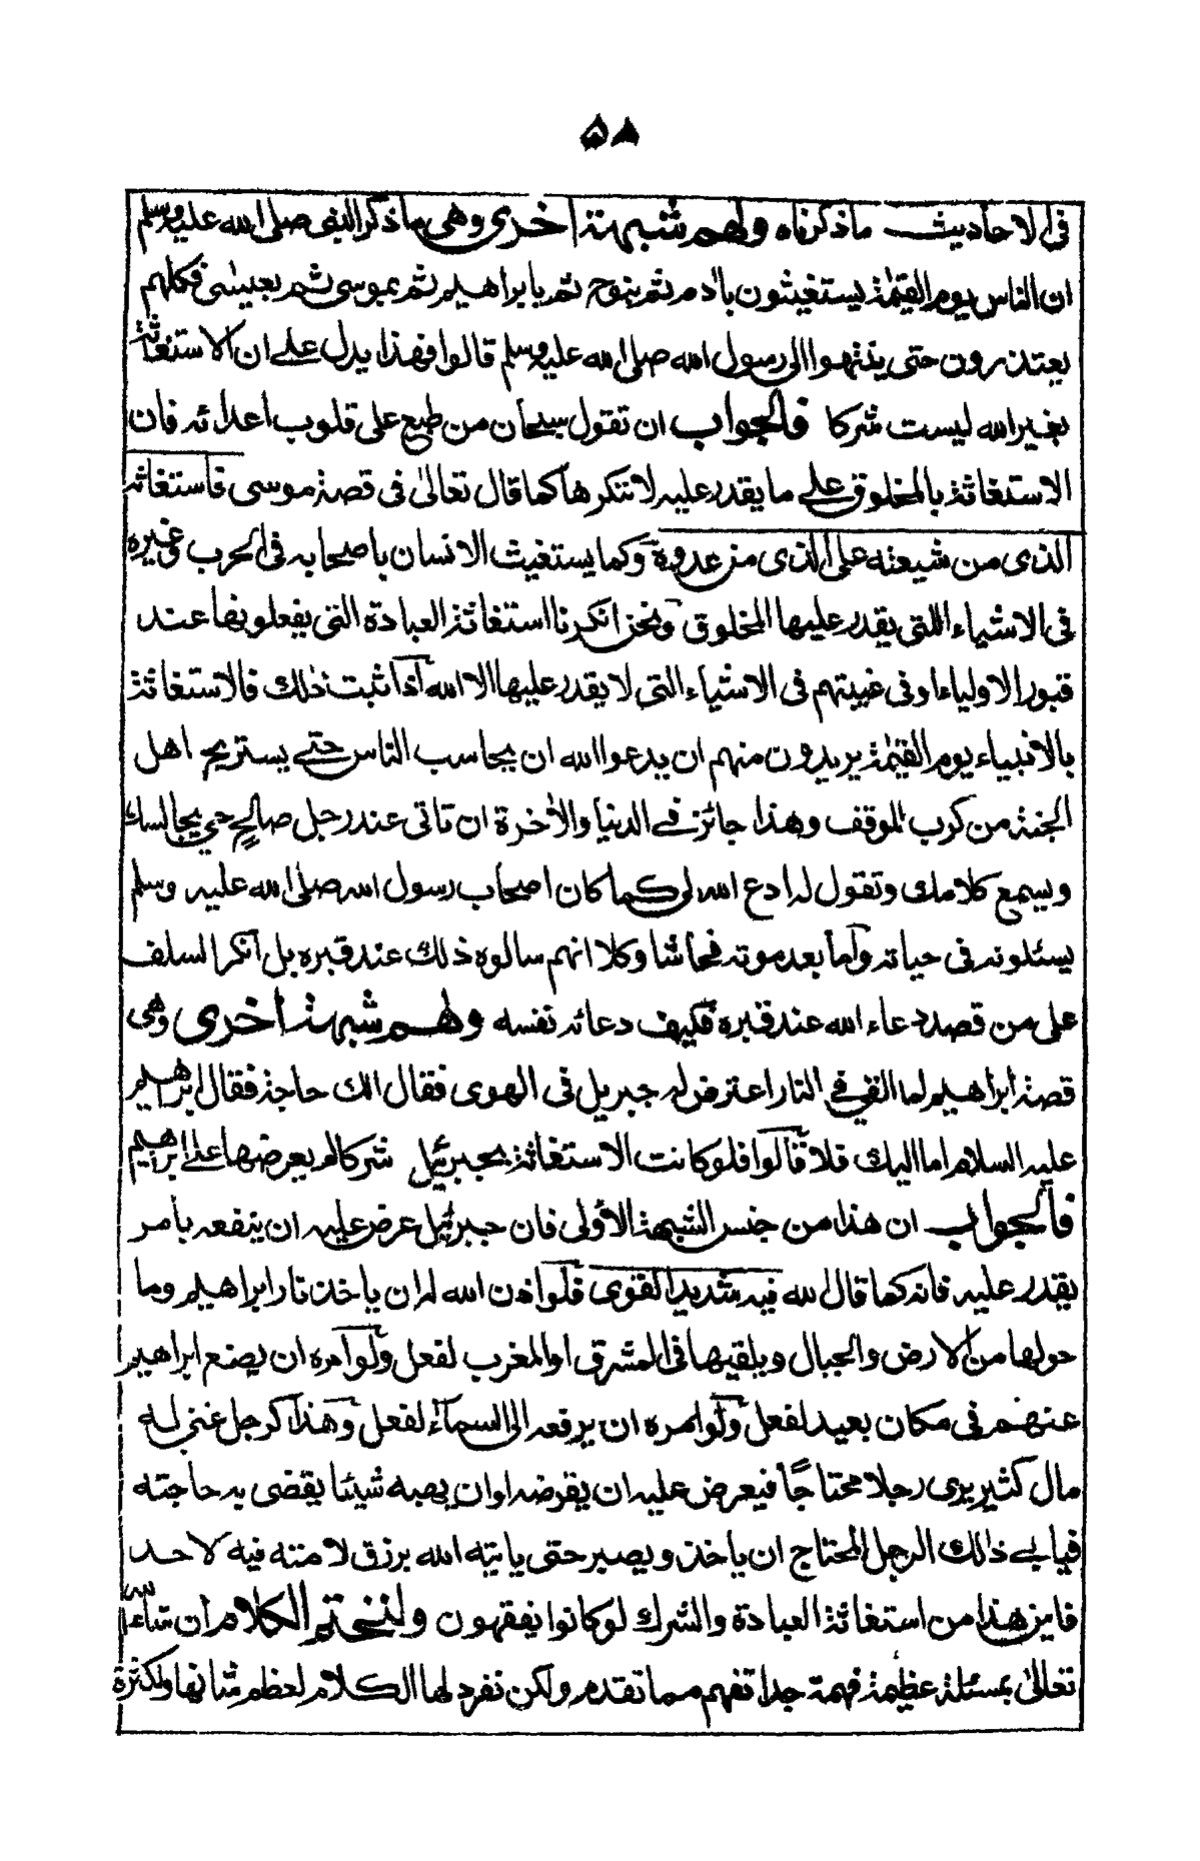 ٥٨
فى الاحاديث ما ذكرناه ولهم شبهة اخرى وهى ما ذكر النبى صلى الله عليه وسلم
ان الناس يوم القيمة يستغيثون بادم ثم بنوح ثم بابراهيم ثم بموسى ثم بعيسى فكلهم
يعتذرون حتى ينتهوا الى رسول الله صلى الله عليه وسلم قالوا فهذا يدل على ان الاستغاثة
بغير الله ليست شركا فالجواب ان تقول سبحان من طبع على قلوب اعدائه فان
الاستغاثة بالمخلوق على ما يقدر عليه لا ننكرها كما قال تعالىٰ فى قصة موسى فاستغاثه
الذى من شيعته على الذى من عدوه وكما يستغيث الانسان باصحابه فى الحرب وغيره
فى الاشياء اللتى يقدر عليها المخلوق ونحن انكرنا استغاثة العبادة التى يفعلونها عند
قبور الاولياء او فى غيبتهم فى الاشياء التى لا يقدر عليها الا الله اذا ثبت ذلك فالاستغاثة
بالانبياء يوم القيمة يريدون منهم ان يدعوا الله ان يحاسب الناس حتى يستريح اهل
الجنة من كرب الموقف وهذا جائز فى الدنيا والاٰخرة ان تاتى عند رجل صالح حي يجالسك
ويسمع كلامك وتقول له ادع الله لى كما كان اصحاب رسول الله صلى الله عليه وسلم
يسئلونه فى حياته واما بعد موته فحاشا وكلا انهم سالوه ذلك عند قبره بل انكر السلف
على من قصد دعاء الله عند قبره فكيف دعائه نفسه ولهم شبهة اخرى وهى
قصة ابراهيم لما القي فى النار اعترض له جبريل فى الهوى فقال الك حاجة فقال ابراهيم
عليه السلام اما اليك فلا قالوا فلو كانت الاستغاثة بجبرئيل شركا لم يعرضها على ابراهيم
فالجواب ان هذا من جنس الشبهة الأولى فان جبرئيل عرض عليه ان ينفعه بامر
يقدر عليه فانه كما قال لله فيه شديد القوى فلو اذن الله له ان ياخذ نار ابراهيم وما
حولها من الارض والجبال ويلقيها فى المشرق او المغرب لفعل ولو امره ان يضع ابراهيم
عنهم فى مكان بعيد لفعل ولو امره ان يرفعه الى السماء لفعل وهذا كرجل غنى له
مال كثير يرى رجلا محتاجًا فيعرض عليه ان يقرضه او ان يهبه شيئا يقضى به حاجته
فيابى ذالك الرجل المحتاج ان ياخذ ويصبر حتى ياتيه الله برزق لا منة فيه لاحد
فاين هذا من استغاثة العبادة والشرك لو كانوا يفقهون ولنختم الكلام ان شاء الله
تعالىٰ بمسئلة عظيمة فهمة جدا تفهم مما تقدم ولكن نفرد لها الكلام لعظم شانها ولكثرة